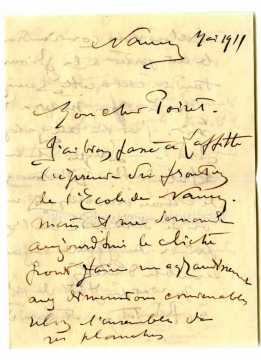 Nancy Mai 1911
Mon cher Poiret.
J'ai bien passé à Laffitte
l'épreuve du fronton
de l'Ecole de Nancy.
mais il me demande
aujourd'hui le cliché
pour faire un agrandissement
aux dimensions convenables
l'ensemble de
ses planches